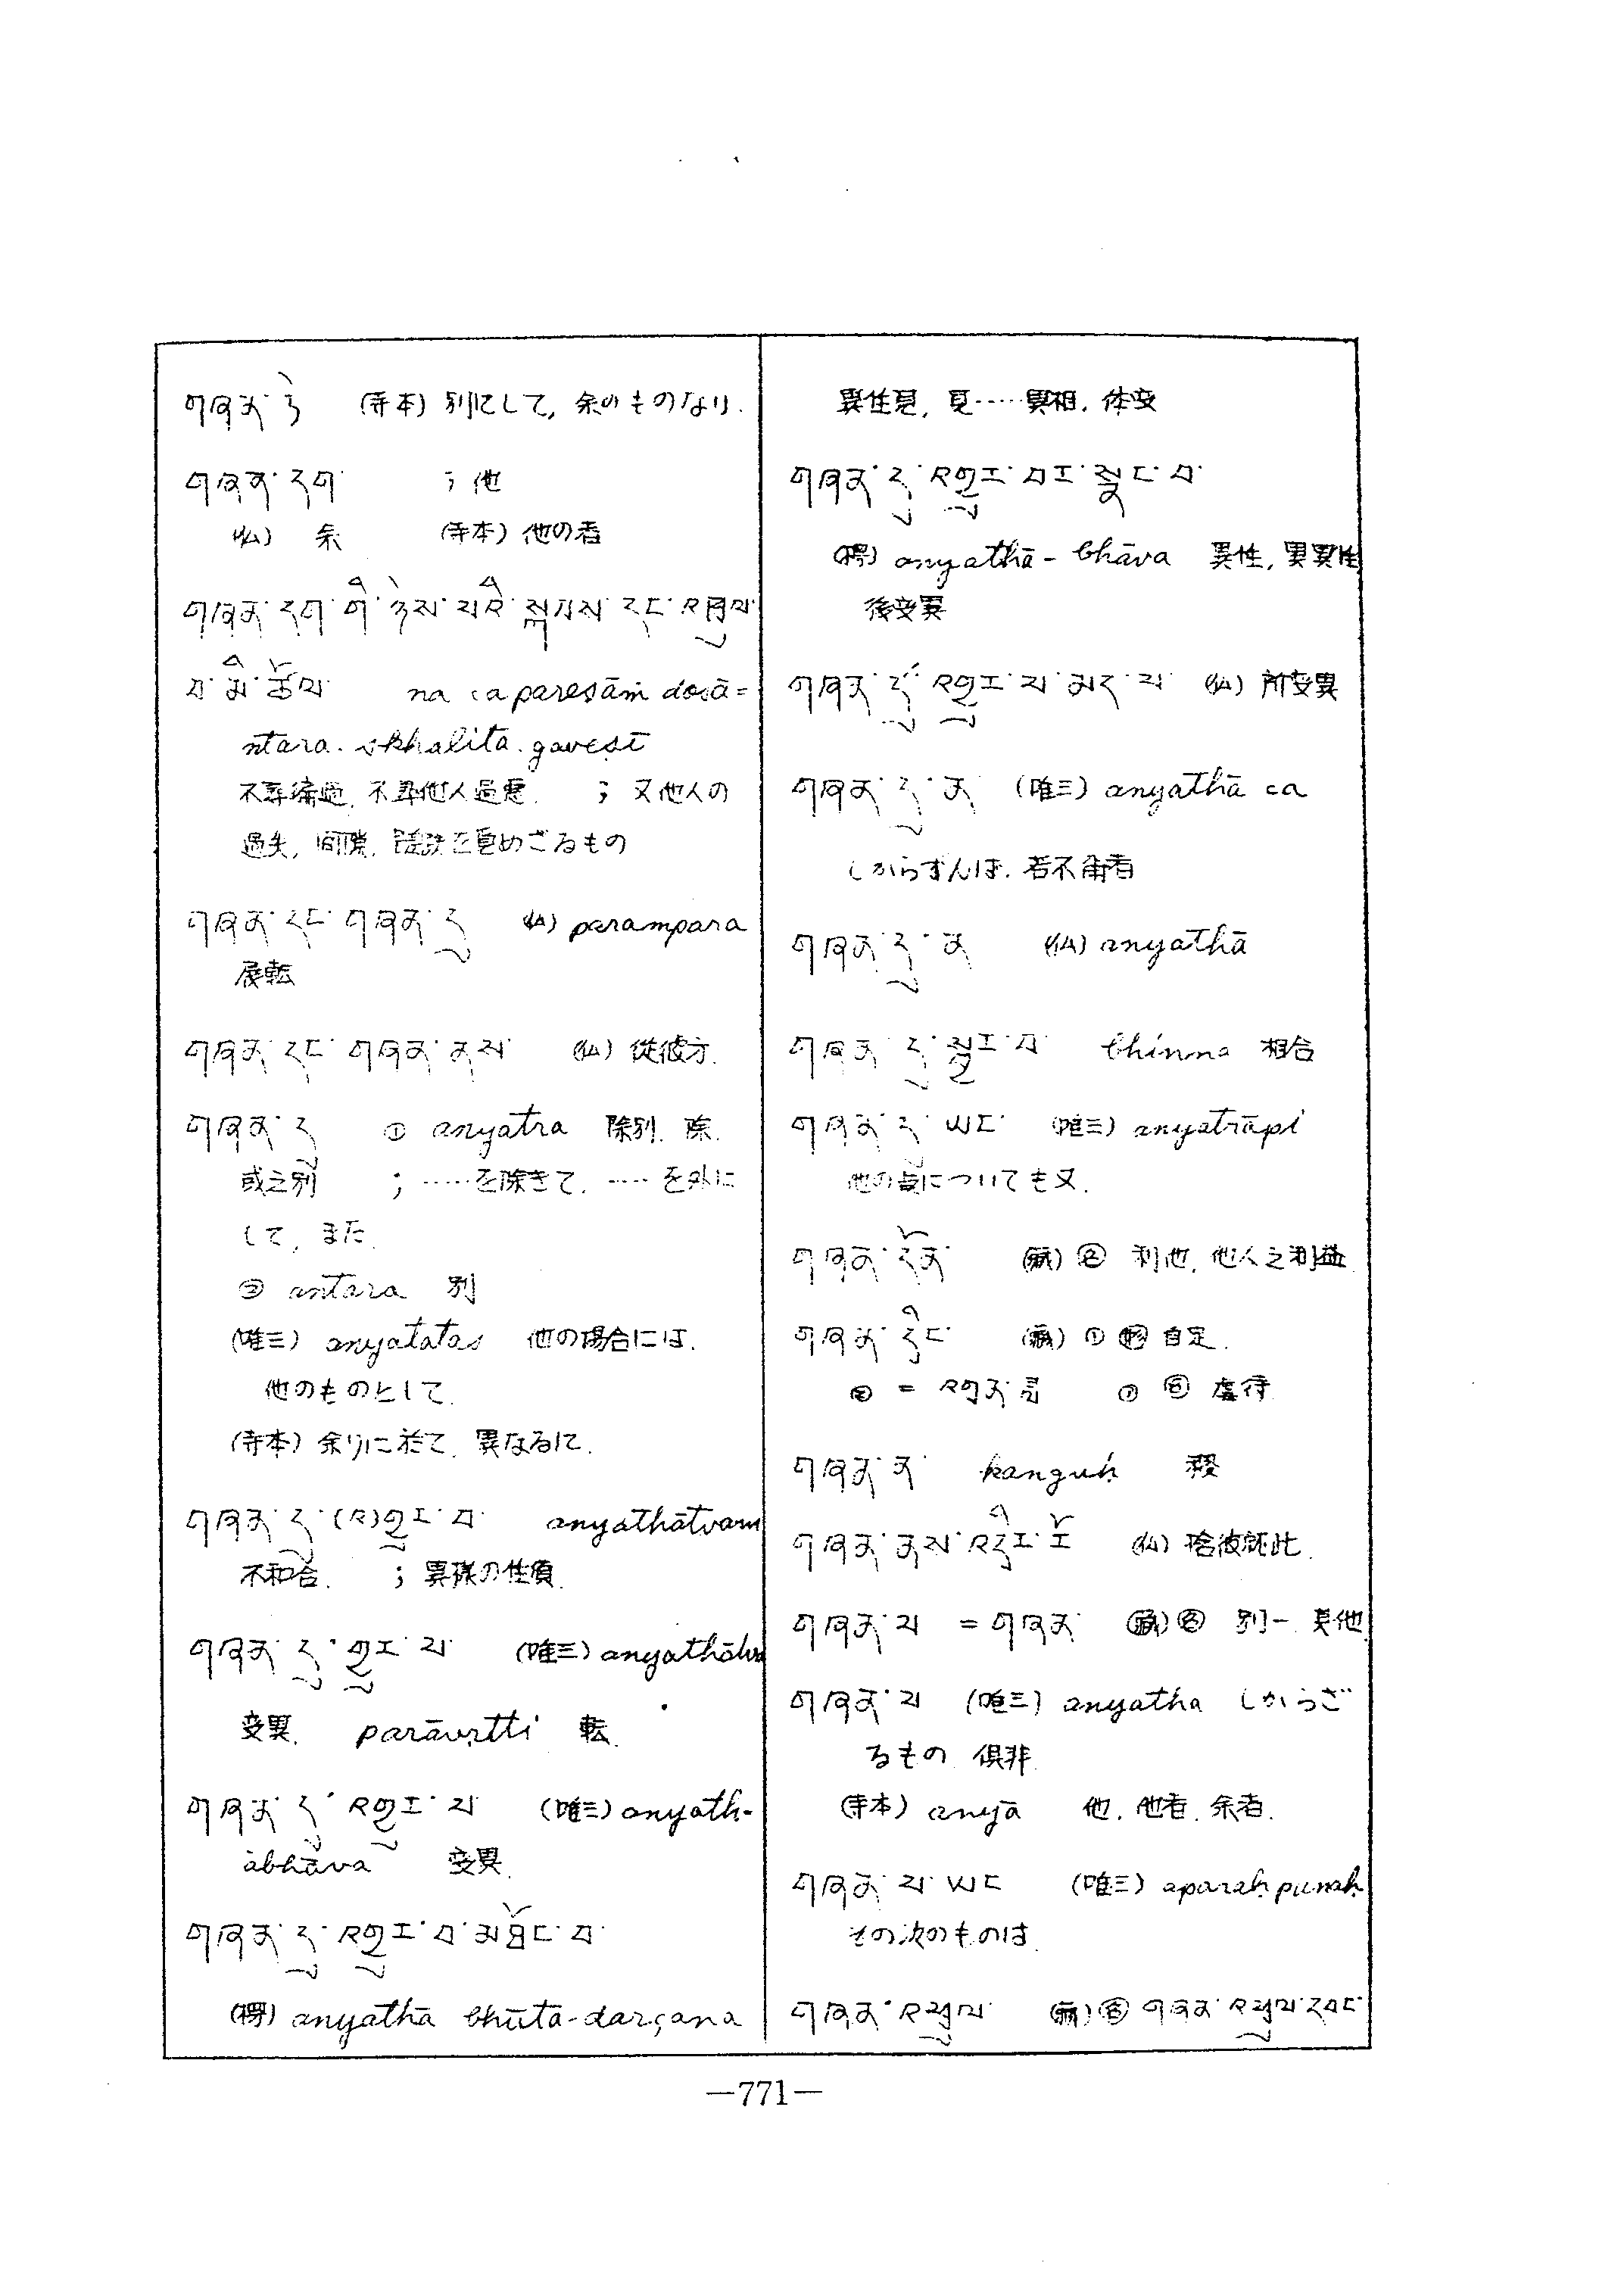 གཞན་ཏེ (寺本) 別にして, 余のものなり.
གཞན་དག་ ; 他
(仏) 余 (寺本) 他の者
གཞན་དག་གི་ཉེས་པའི་སྐབས་དང་འཁྲུལ་
པ་མི་ཚོལ་ na ca pareṣāṁ doṣā=
ntara. skhalita. gaveṣī
不尋他人過悪 ; 又他人の
過失, 間隙, を求めざるもの
གཞན་དང་གཞན་དུ (仏) parampara
展転
གཞན་དང་གཞན་ནས་ (仏) 從彼方.
གཞན་དུ ① anyatra 除別. 除.
或之別 ; ……を除きて. …… を外に
して, また.
② antara 別
(唯三) anyatatas 他の場合には.
他のものとして.
(寺本) 余りに於て. 異なるに.
གཞན་དུ་(འ)གྱུར་བ་ anyathātvam
不和合. ; 異様の性質.
གཞན་དུ་གྱུར་པ་ (唯三)
変異. parāvṛtti 転.
གཞན་དུ་འགྱུར་པ (唯三) anyath-
ābhāva 変異.
གཞན་དུ་འགྱུར་བ་མཐོང་བ་
(楞) anyathā bhūta-darçana
異性見, 見……異相. 体変
གཞན་དུ་འགྱུར་བར་སྣང་བ་
(楞) anyathā-bhāva 異性, 異異性
後変異
གཞན་དུ་འགྱུར་པ་མེད་པ་ (仏) 所変異
གཞན་དུ་ན (唯三) anyathā ca
しからずんば. 若不爾者
གཞན་དུ་ན (仏) anyathā
གཞན་དུ་སྦྱར་བ་ bhinna 相合
གཞན་དུ་ཡང་ (唯三) anyatrāpi
他の处についても又.
གཞན་དོན (蔵) 名 利他, 他人之利益
གཞན་དྲིང (蔵) ① 自定.
② = ① 名 虐待
གཞན་ན་ kanguḥ 稷
གཞན་ནས་འདིར་རོ (仏) 捨彼就此.
གཞན་པ = གཞན (蔵) 名 別一. 其他
གཞན་པ (唯三) anyatha しからざ
るもの 倶非.
(寺本) anyā 他. 他者. 余者.
གཞན་པ་ཡང (唯三) aparaḥ punaḥ
その次のものは.
གཞན་འཕྲུལ་ (蔵) 名 གཞན་འཕྲུལ་དབང་
—771—